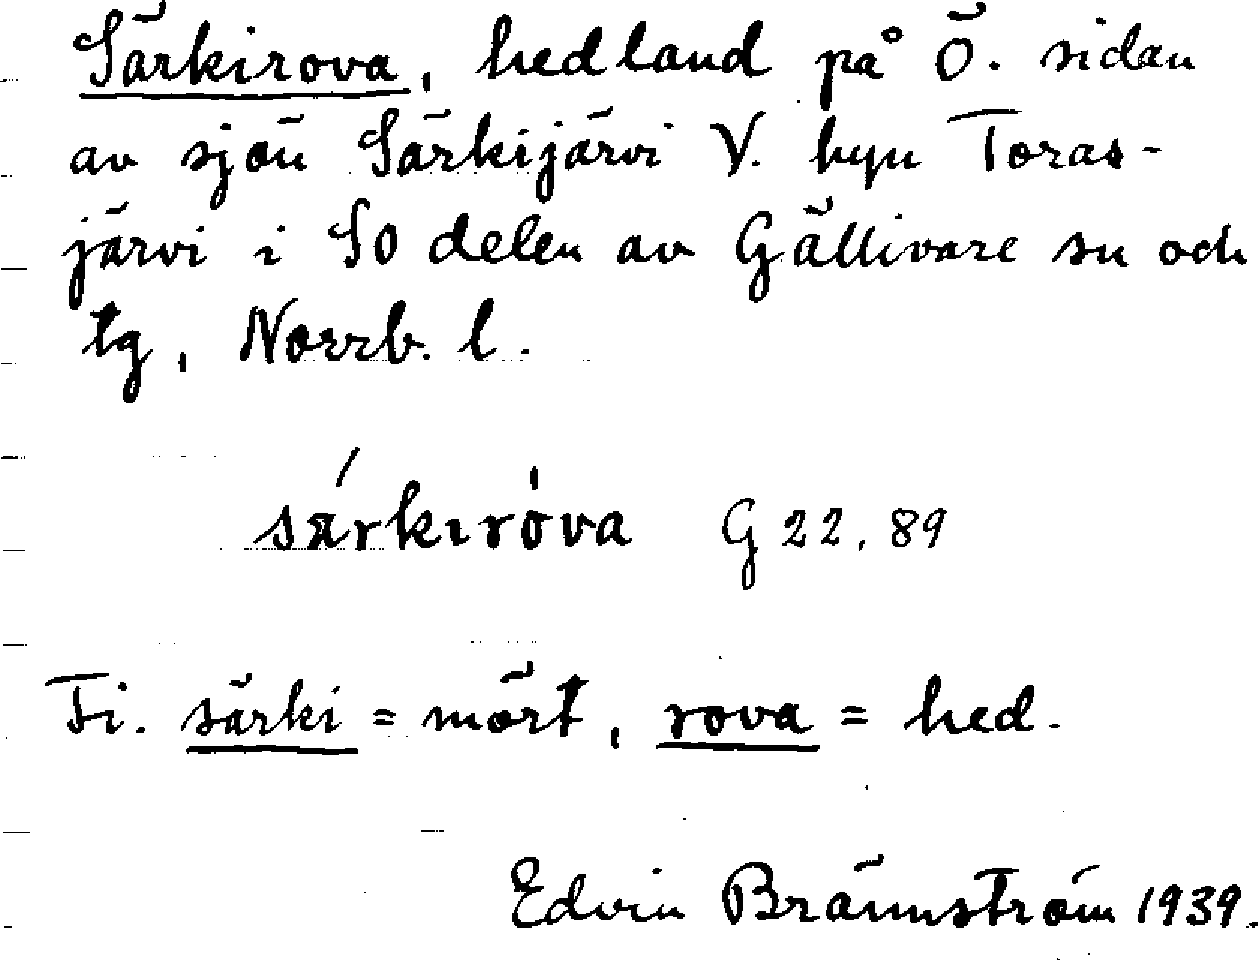 Särkirova, hedland på Ö. sidan
av sjön Särkijärvi V. byn Toras-
järvi i SO delen av Gällivare sn och
tg, Norrb. l.
särkıròva G 22, 89
Fi. särki = mört, rova = hed.
Edvin Brännström 1939.